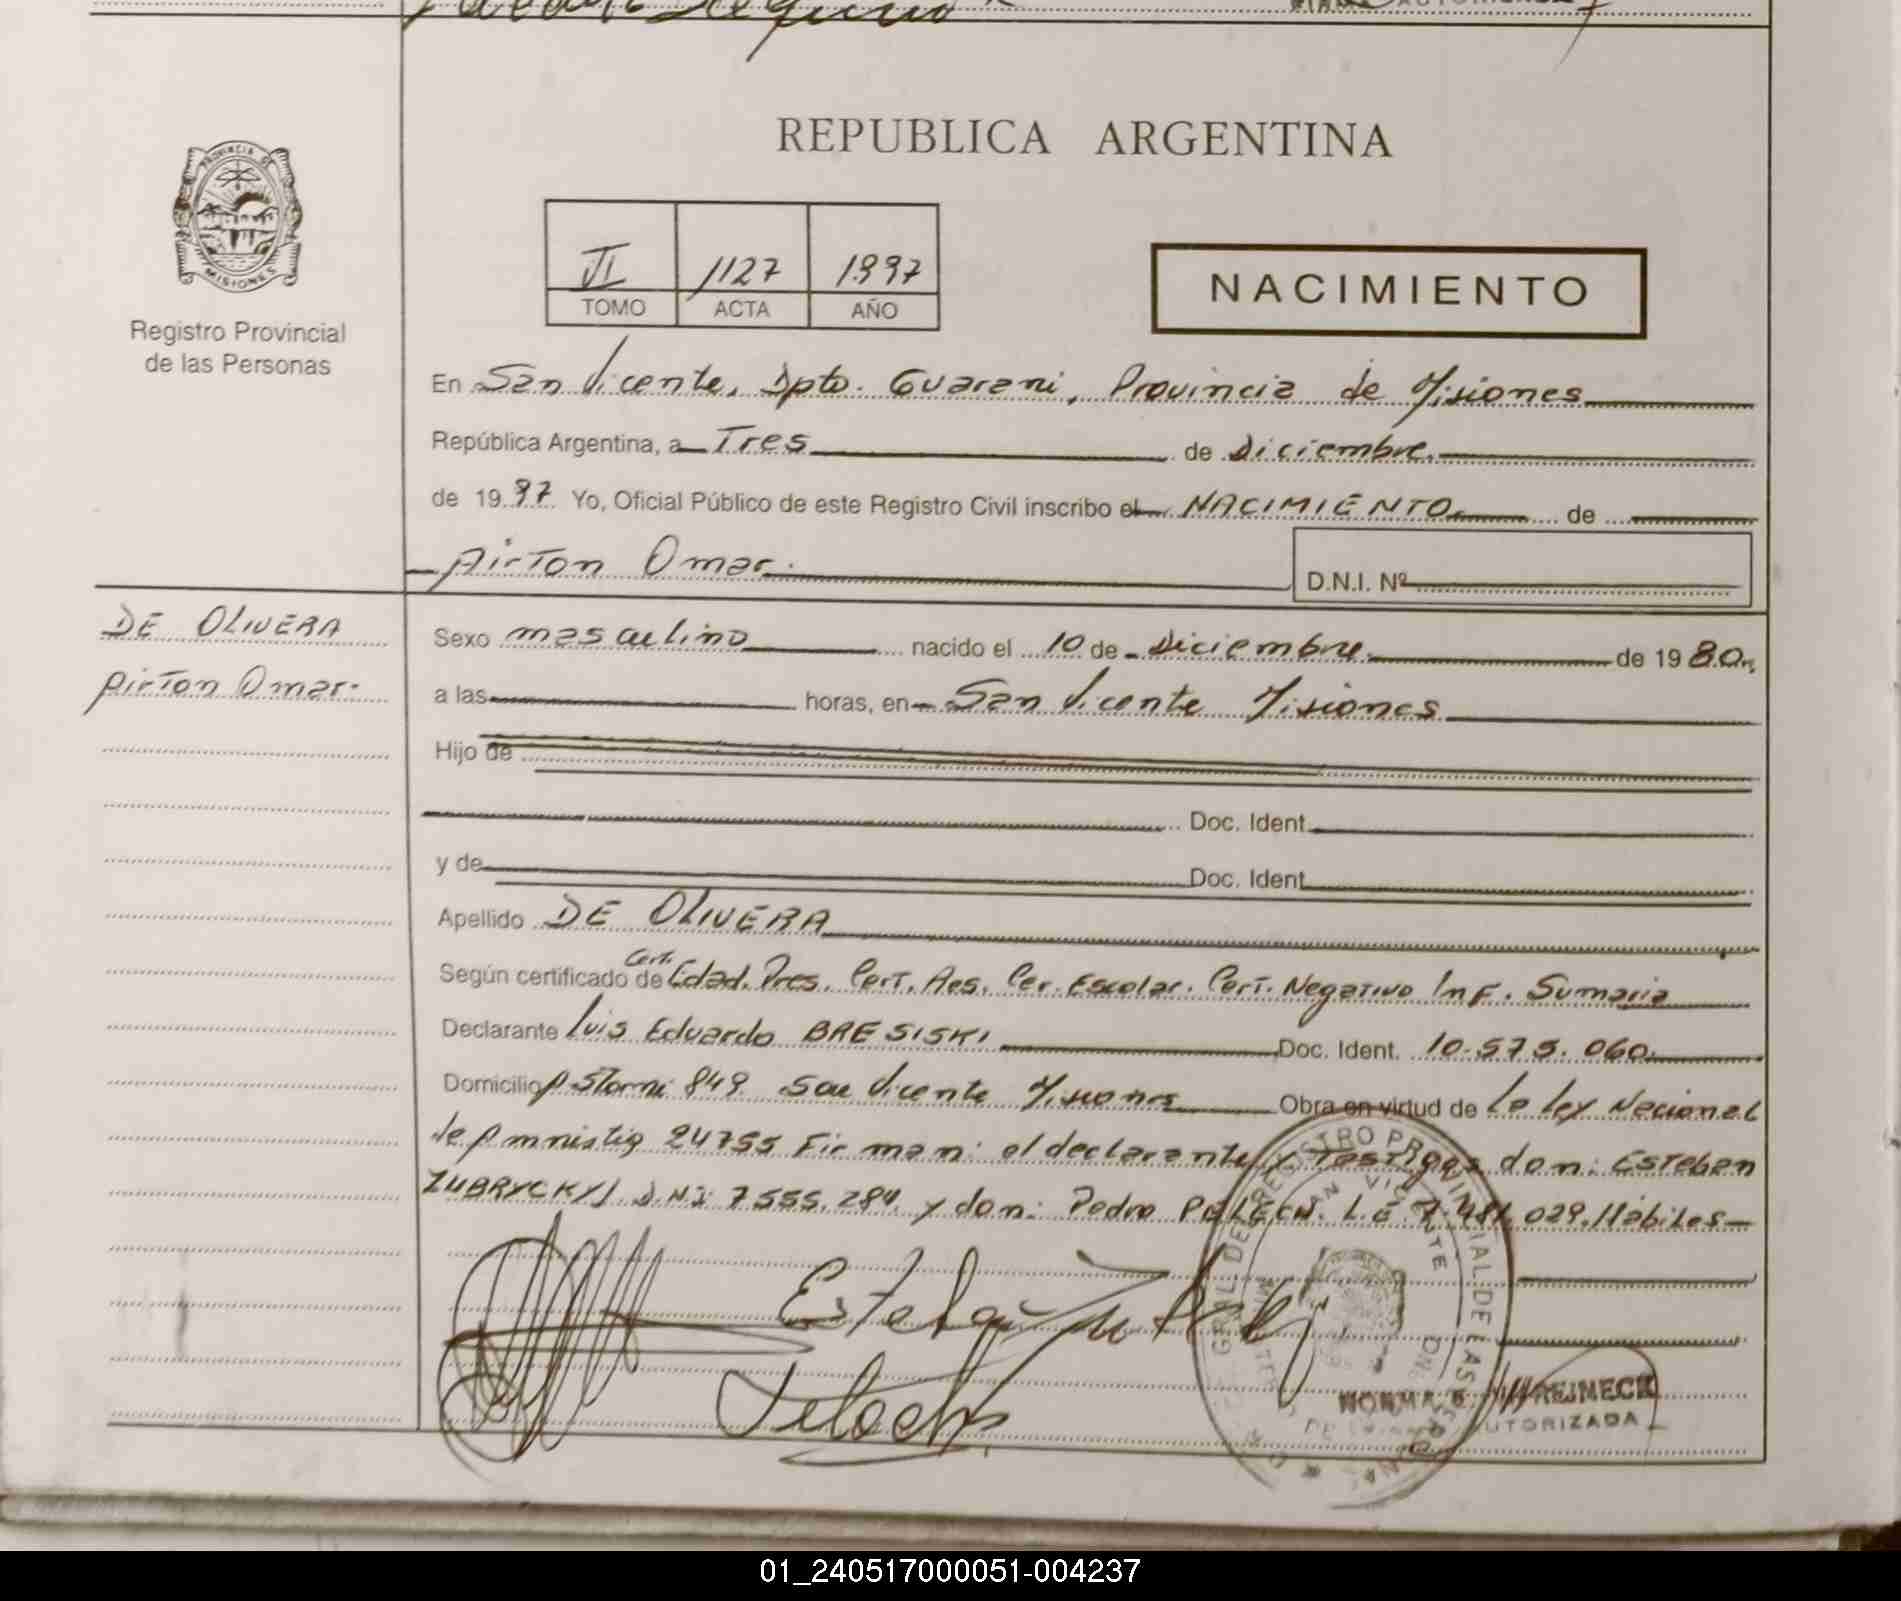 REPUBLICA ARGENTINA
PROVINCIA DE
MISIONES
Registro Provincial
de las Personas
VI 1127 1997
TOMO ACTA AÑO
NACIMIENTO
En San Vicente, Dpto. Guarani, Provincia de Misiones
República Argentina, a Tres de Diciembre
de 1997 Yo, Oficial Público de este Registro Civil inscribo el NACIMIENTO de
Airton Omar.
D.N.I. Nº
DE OLIVERA
Airton Omar.
Sexo masculino nacido el 10 de Diciembre de 1980
a las horas, en San Vicente Misiones
Hijo de
Doc. Ident.
y de Doc. Ident.
Apellido DE OLIVERA
Según certificado de Cert. Edad. Pres. Cert. Aes. Cer. Escolar. Cert. Negativo Inf. Sumaria
Declarante Luis Eduardo BRESISKI Doc. Ident. 10.575.060
Domicilio A Storni 849 San Vicente Misiones Obra en virtud de la ley Nacional
de Amnistia 24755 Firman: el declarante y testigos don: Esteban
ZUBRYCKYJ D.N.I: 7555.284 y don: Pedro L.E. 7.481.029. Habiles
NORMA REIMECK
AUTORIZADA
01_240517000051-004237